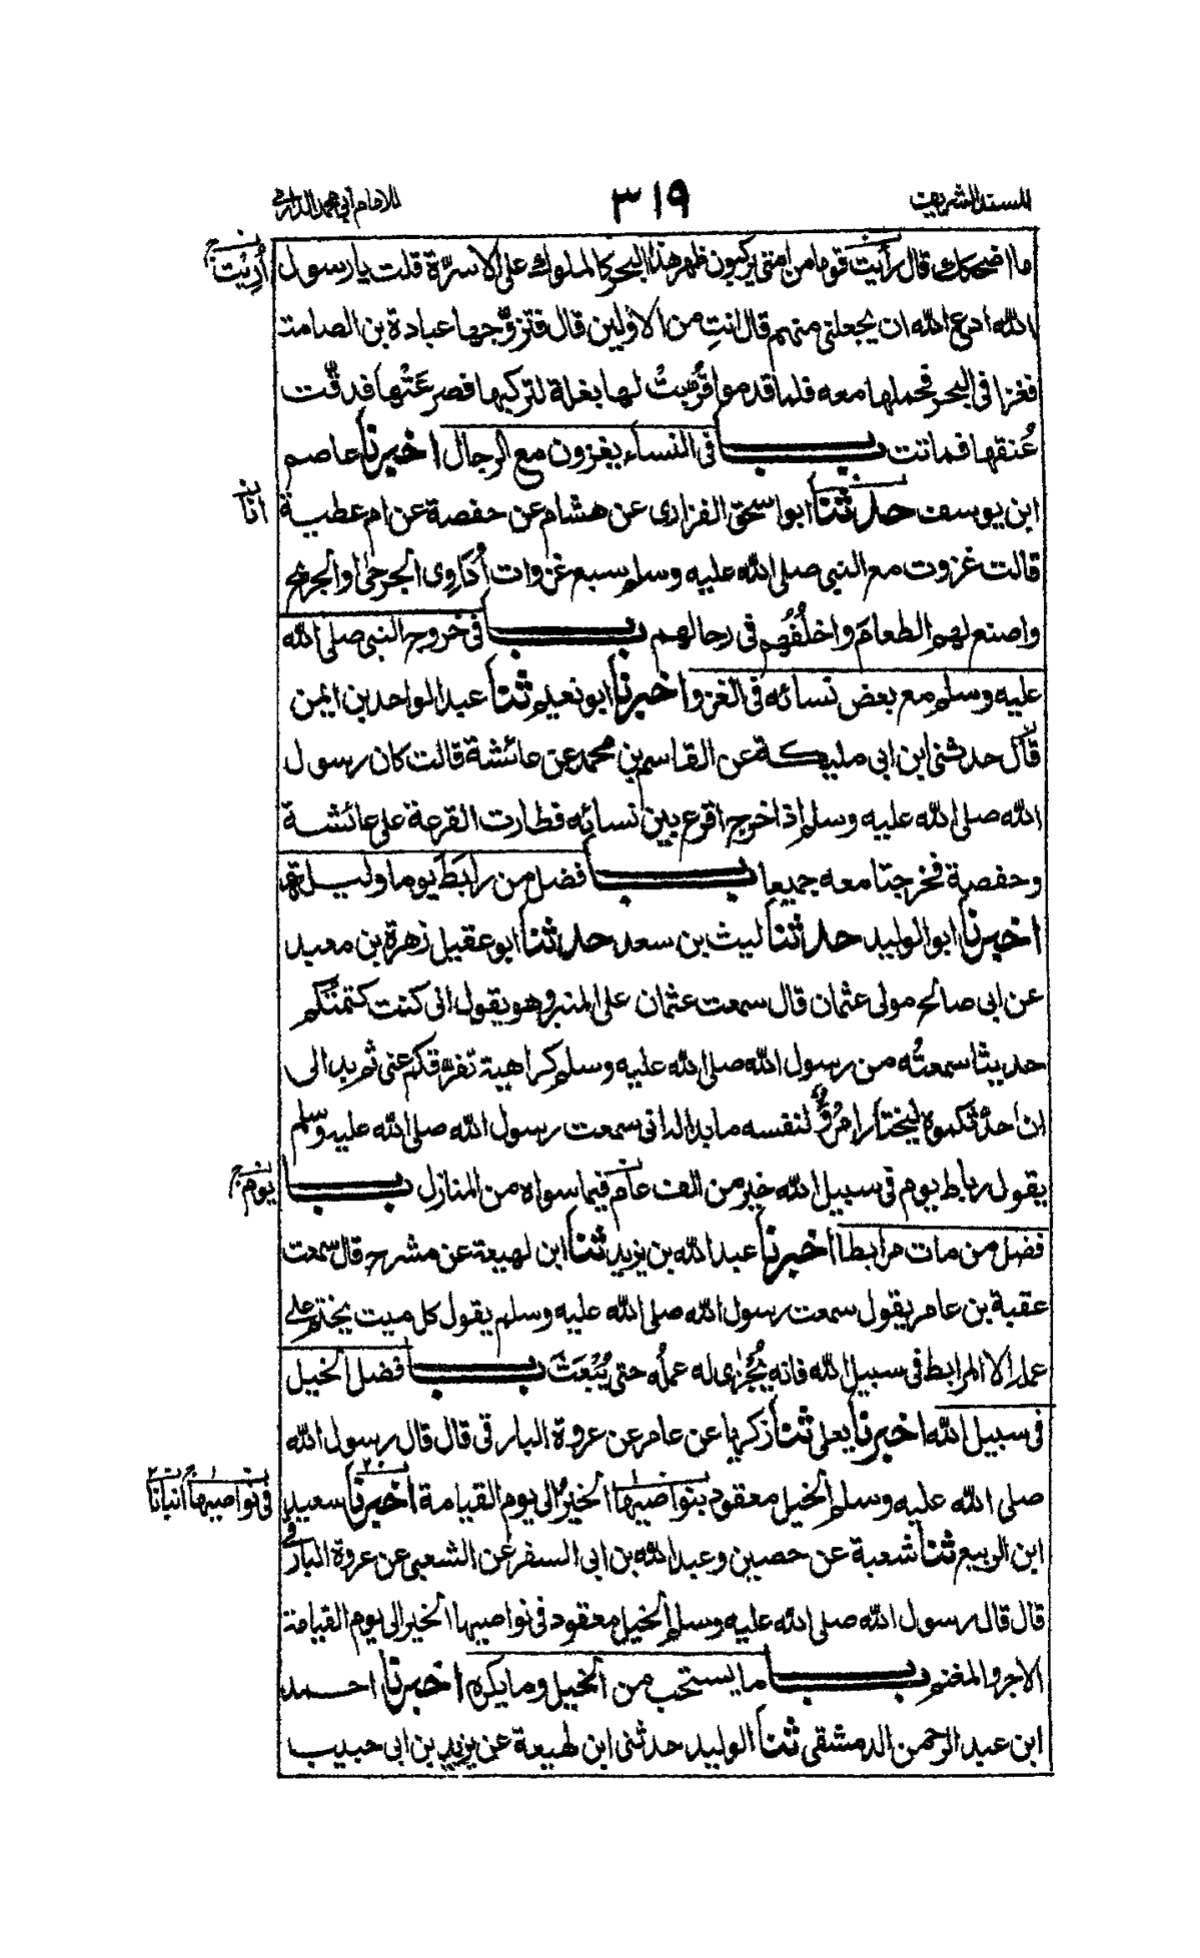 المسند الشريف ٣١٩ للامام ابي محمد الدارمي
ما اضحكك قال رأيت قوما من امتي يركبون ظهر هذا البحر كالملوك على الاسرّة قلت يا رسول
أُرِيْتُ
الله ادع الله ان يجعلني منهم قال انتِ من الاولين قال فتزوّجها عبادة بن الصامت
فغزا في البحر فحملها معه فلما قدموا قُرّبتْ لها بغلة لتركبها فصرعَتْها فدقّت
عُنقها فماتت باب في النساء يغزون مع الرجال اخبرنا عاصم
ابن يوسف حدثنا ابو اسحق الفزاري عن هشام عن حفصة عن ام عطية
انا
قالت غزوت مع النبي صلى الله عليه وسلم سبع غزوات أُدَاوِي الجرحى او الجريح
واصنع لهم الطعامَ واخلُفُهم في رحالهم باب في خروج النبي صلى الله
عليه وسلم مع بعض نسائه في الغزو اخبرنا ابو نعيم ثنا عبد الواحد بن ايمن
قال حدثني ابن ابي مليكة عن القاسم بن محمد عن عائشة قالت كان رسول
الله صلى الله عليه وسلم اذا خرج اقرع بين نسائه فطارت القرعة على عائشة
وحفصة فخرجتا معه جميعا باب فضل من رابَطَ يوما وليلة
اخبرنا ابو الوليد حدثنا ليث بن سعد حدثنا ابو عقيل زهرة بن معبد
عن ابي صالح مولى عثمان قال سمعت عثمان على المنبر وهو يقول اني كنت كتمتُكم
حديثا سمعتُه من رسول الله صلى الله عليه وسلم كراهية تفرّقكم عني ثم بدا لي
ان احدّثكموه ليختار امرُؤٌ لنفسه ما بدا له اني سمعت رسول الله صلى الله عليه وسلم
يقول رباط يوم في سبيل الله خير من الف عام فيما سواه من المنازل باب
يوم
فضل من مات مرابطا اخبرنا عبد الله بن يزيد ثنا ابن لهيعة عن مشرح قال سمعت
عقبة بن عامر يقول سمعت رسول الله صلى الله عليه وسلم يقول كل ميت يختم على
عمله الا المرابط في سبيل الله فانه يُجْرٰى له عملُه حتى يُبْعَثَ باب فضل الخيل
في سبيل الله اخبرنا يعلى ثنا زكريا عن عامر عن عروة البارقي قال قال رسول الله
صلى الله عليه وسلم الخيل معقود بنواصيها الخيرُ الى يوم القيامة اخبرنا سعيد
في نواصيها انبانا
ابن الربيع ثنا شعبة عن حصين وعبد الله بن ابي السفر عن الشعبي عن عروة البارقي
قال قال رسول الله صلى الله عليه وسلم الخيل معقود في نواصيها الخير الى يوم القيامة
الاجر والمغنم باب ما يستحب من الخيل وما يكره اخبرنا احمد
ابن عبد الرحمن الدمشقي ثنا الوليد حدثني ابن لهيعة عن يزيد بن ابي حبيب